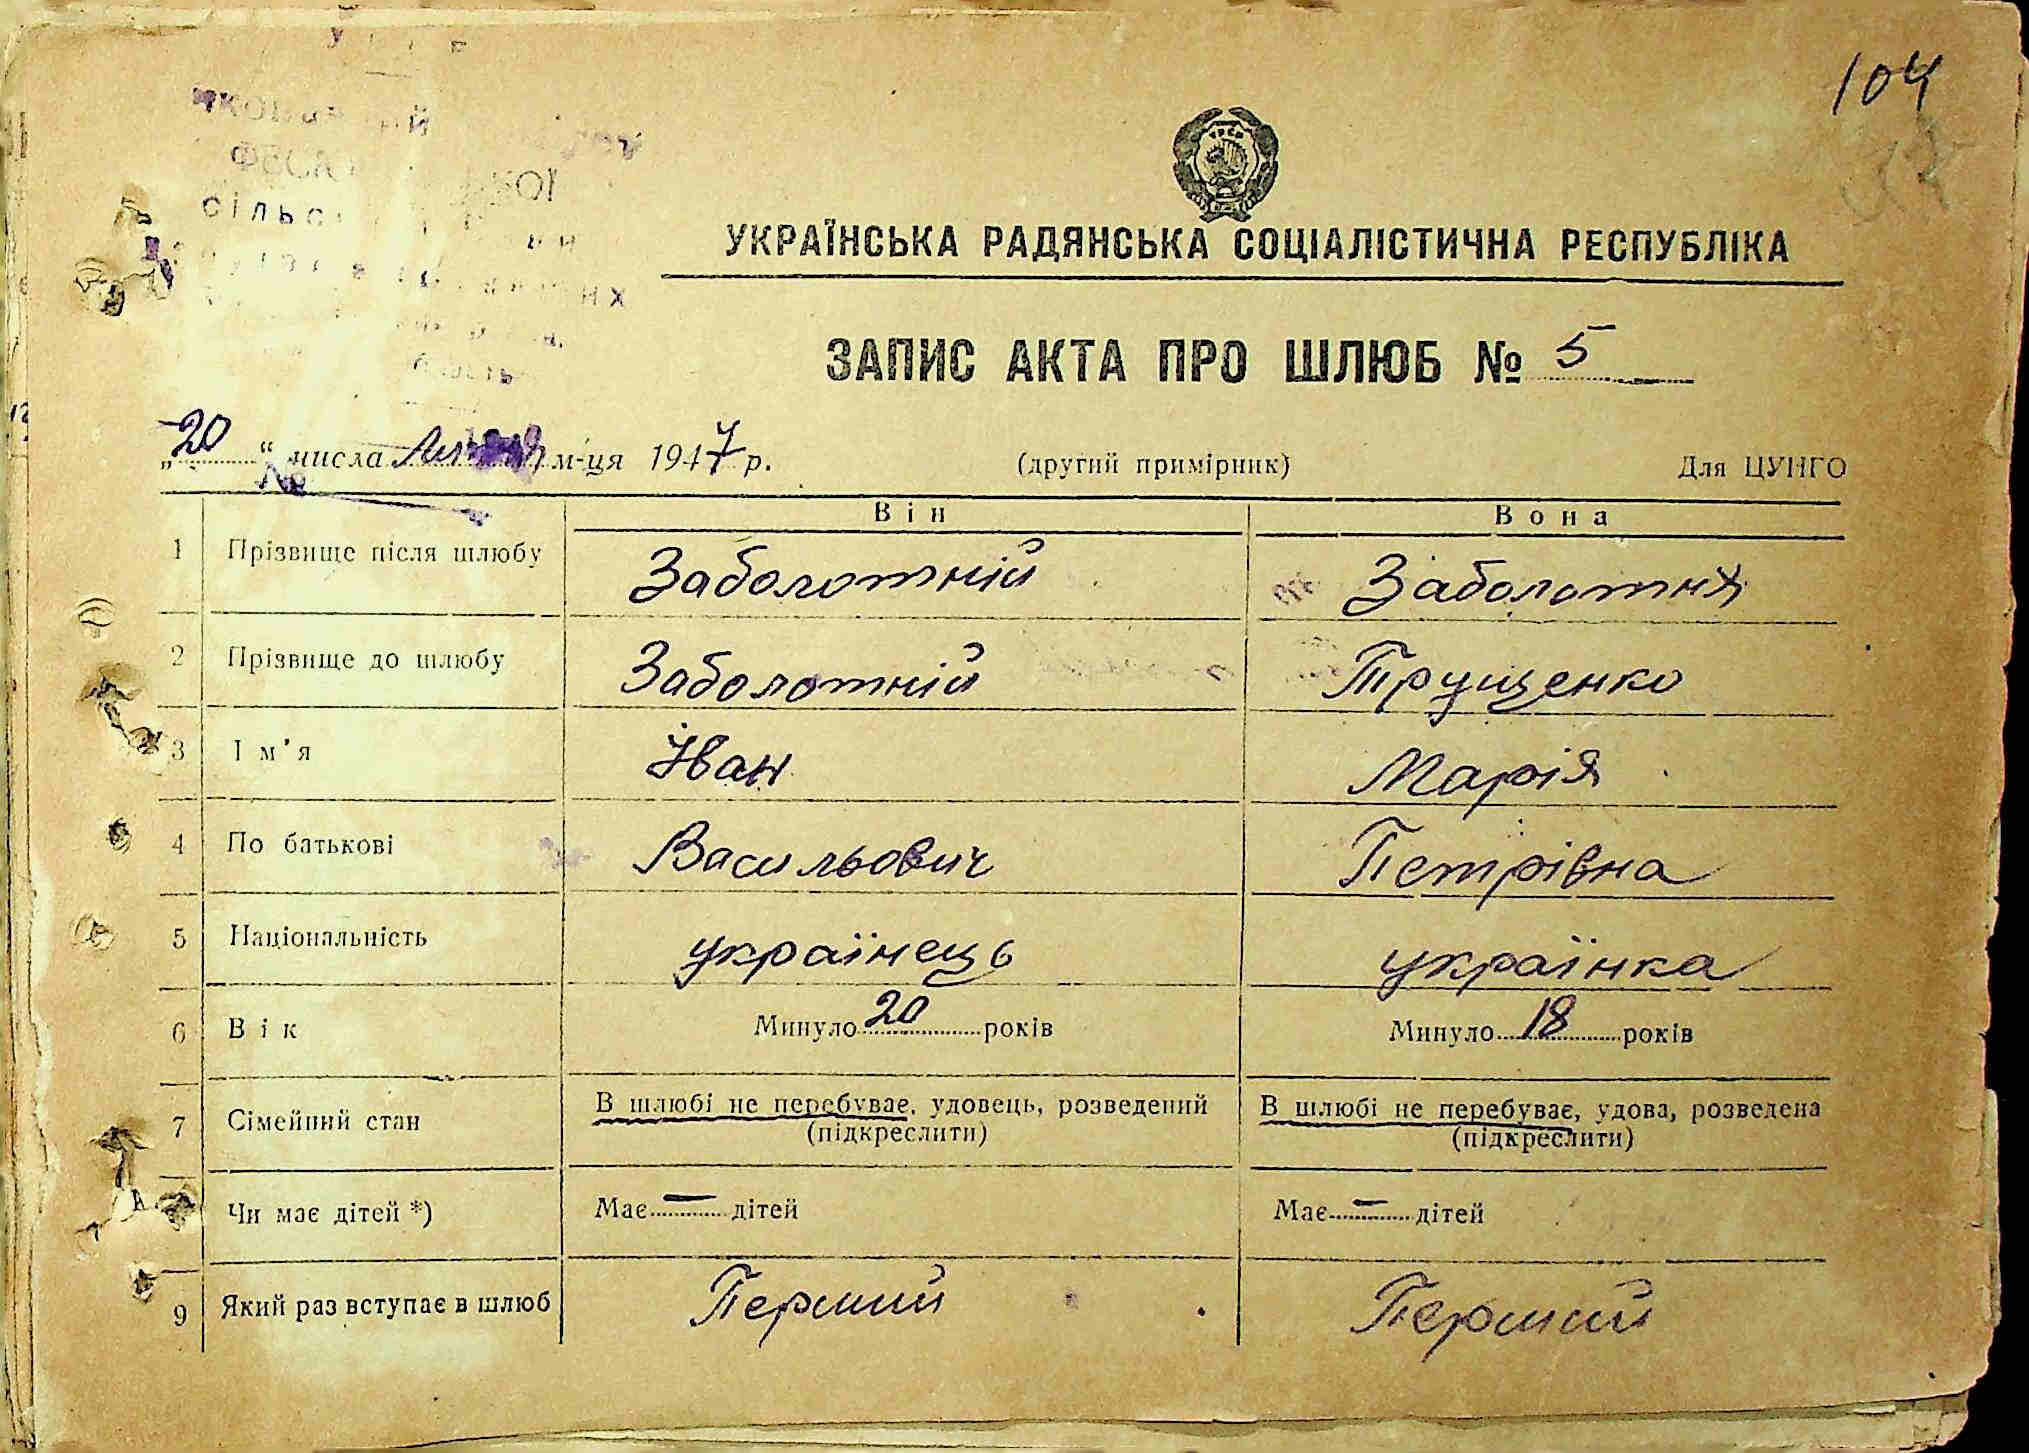 104
УКРАЇНСЬКА РАДЯНСЬКА СОЦІАЛІСТИЧНА РЕСПУБЛІКА
ЗАПИС АКТА ПРО ШЛЮБ № 5
„20“ числа м-ця 1947 р. (другий примірник) Для ЦУНГО
Він Вона
1 Прізвище після шлюбу Заболотній Заболотня
2 Прізвище до шлюбу Заболотній Трущенко
3 Ім'я Іван Марія
4 По батькові Васильович Петрівна
5 Національність українець українка
6 Вік Минуло 20 років Минуло 18 років
7 Сімейний стан В шлюбі не перебуває, удовець, розведений (підкреслити) В шлюбі не перебуває, удова, розведена (підкреслити)
Чи має дітей *) Має — дітей Має — дітей
9 Який раз вступає в шлюб Перший Перший